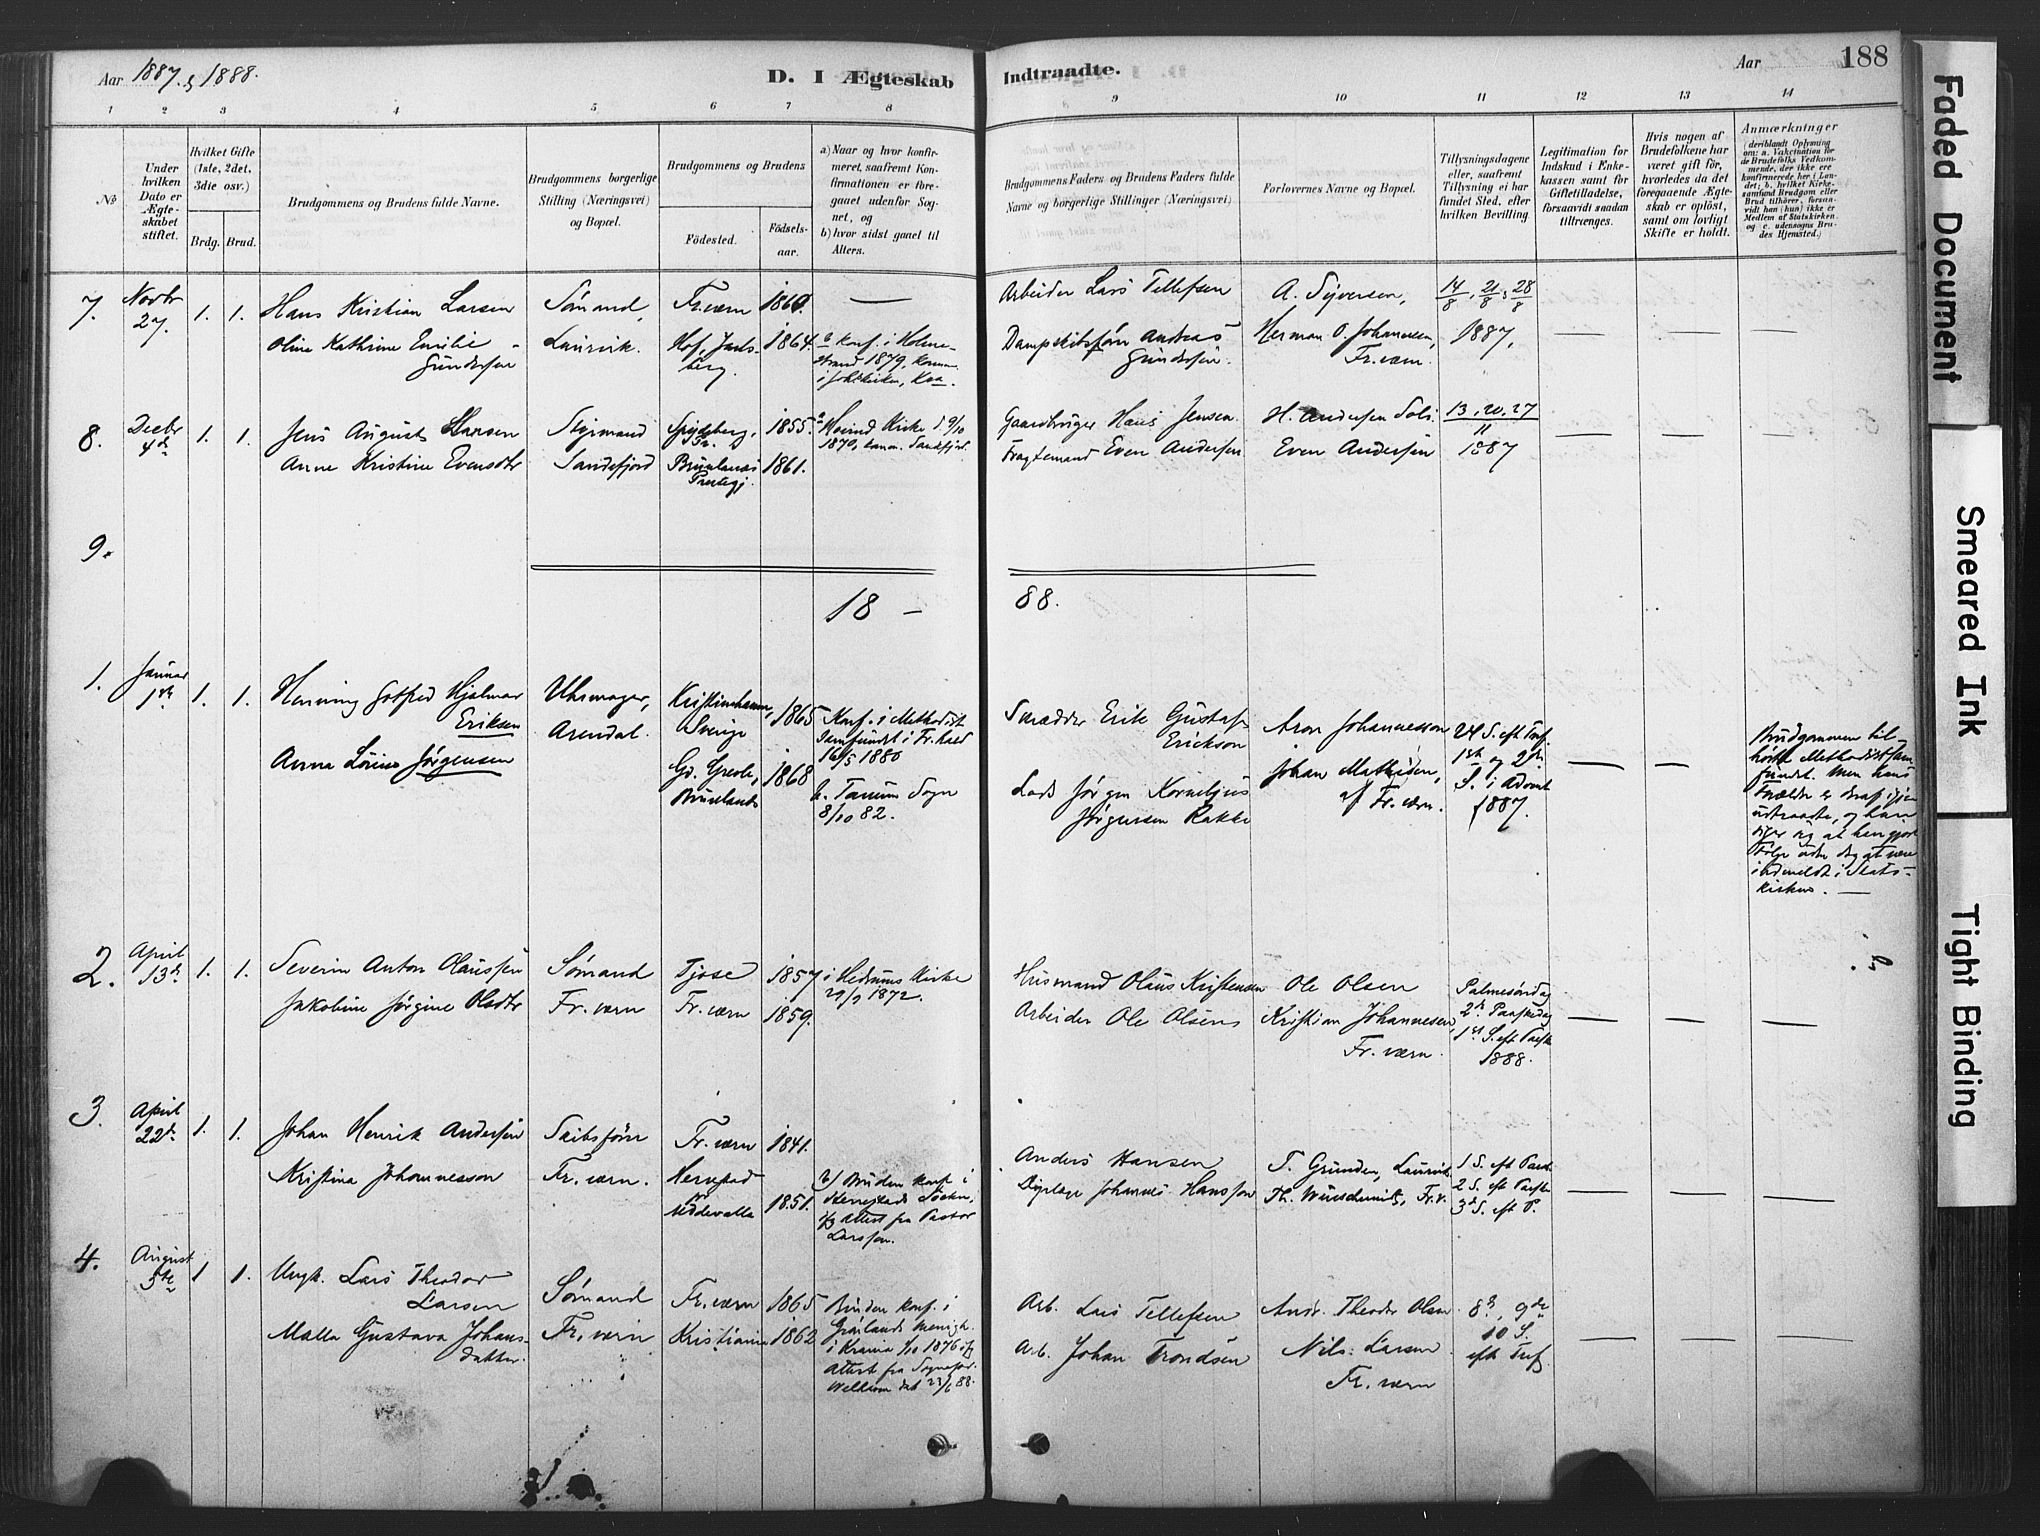 Aar 1887 & 1888.
D. I Ægteskab Indtraadte.
Aar 188
1 2 3 4 5 6 7 8 9 10 11 12 13 14
№
Under hvilken Dato er Ægteskabet stiftet.
Hvilket Gifte (1ste, 2det, 3die osv.)
Brdg. Brud.
Brudgommens og Brudens fulde Navne.
Brudgommens borgerlige Stilling (Næringsvei) og Bopæl.
Brudgommens og Brudens
Fødested.
Fødselsaar.
a) Naar og hvor konfirmeret, saafremt Konfirmationen er foregaaet udenfor Sognet, og
b) hvor sidst gaaet til Alters.
Brudgommens Faders og Brudens Faders fulde Navne og borgerlige Stillinger (Næringsvei)
Forlovernes Navne og Bopæl.
Tillysningsdagene eller, saafremt Tillysning ei har fundet Sted, efter hvilken Bevilling.
Legitimation for Indskud i Enkekassen samt for Giftetilladelse, forsaavidt saadan tiltrænges.
Hvis nogen af Brudefolkene har været gift før, hvorledes da det foregaaende Ægteskab er opløst, samt om lovligt Skifte er holdt.
Anmærkninger (deriblandt Oplysning om: a. Vakcination for de Brudefolks Vedkommende, der ikke ere konfirmerede her i Landet; b. hvilket Kirkesamfund Brudgom eller Brud tilhører, forsaavidt han (hun) ikke er Medlem af Statskirken. og c. udensogns Brudes Hjemsted.)
7. Novbr 27. 1. 1.
Hans Kristian Larsen
Oline Kathrine Emilie Gundersen
Sømand, Laurvik.
Fr.værn 1860. —
Hof, Jarlsberg. 1864.
konf. i Holmestrand 1879,
Arbeider Lars Tellefsen
Dampskibsfører Andreas Gundersen
A. Syversen,
Herman O. Johannesen, Fr.værn.
14/8, 21/8, 28/8 1887,
8. Decbr 4d 1. 1.
Jens August Hansen
Anne Kristine Evensdtr
Styrmand Sandefjord
1855.
Brunlanes Prestegj. 1861.
Kirke d. 9/10 1870,
Gaardbruger Hans Jensen
Fragtemand Even Andersen
H. Andersen
Even Andersen
13, 20, 27/11 1887
9.
18 — 88.
1. Januar 1ste 1. 1.
Henning Gotfred Hjalmar Eriksen
Anna Lovise Jørgensen
Uhrmager, Arendal.
Kristinehamn, Sverige 1865
Brunlanes 1868
Konf. i Methodist Samfundet i Fr.hald 16/5 1880
b. Tanum Sogn 8/10 82.
Skrædder Erik Gustaf Erickson
Lods Jørgen Kornelius Jørgensen Rakke
Aron Johannesson
Johan Mathisen, af Fr.værn.
24 S. eft Tref. 1ste og 2den S. i Advent 1887.
Brudgommen tilhørte Methodistsamfundet. Men hans Forældre er
udtraadte, og han siger sig at
indmeldt i Statskirken. —
2. April 13d. 1. 1.
Severin Anton Olaussen
Jakobine Jørgine Olsdtr
Sømand Fr.værn
Tjose 1857
Fr.værn 1859.
i Hedrums Kirke 29/9 1872.
Husmand Olaus Kristensen
Arbeider Ole Olsen
Ole Olsen
Kristian Johannesen, Fr.værn.
Palmesøndag 2d. Paaskedag 1st S. eft Paaske 1888.
3. April 22d. 1. 1.
Johan Henrik Andersen
Kristina Johannesson
Skibsfører Fr.værn.
Fr.værn 1841.
Herrestad pr Uddevalla 1851.
b) Bruden konf. i Herrestads Socken,
Attest fra Pastor Larsson.
Anders Hansen
Johannes Hansson
T. Grunden, Laurvik
Th. Wunschmits, Fr.v.
1 S. eft Paaske
2 S. eft Paaske
3d S. eft P.
4. August 5te 1 1.
Ungk. Lars Theodor Larsen
Malla Gustava Johansdatter.
Sømand Fr.værn
Fr.værn 1865
Kristiania 1862
Bruden konf. i Grønlands Menigh. i Krania 1/10 1876 ifg Attest fra
dat 23/6 88.
Arb. Lars Tellefsen
Arb. Johan Trondsen
Andr. Theodor Olsen
Nils Larsen Fr.værn
8d, 9de 10 S. eft Tref.
Faded Document
Smeared Ink
Tight Binding